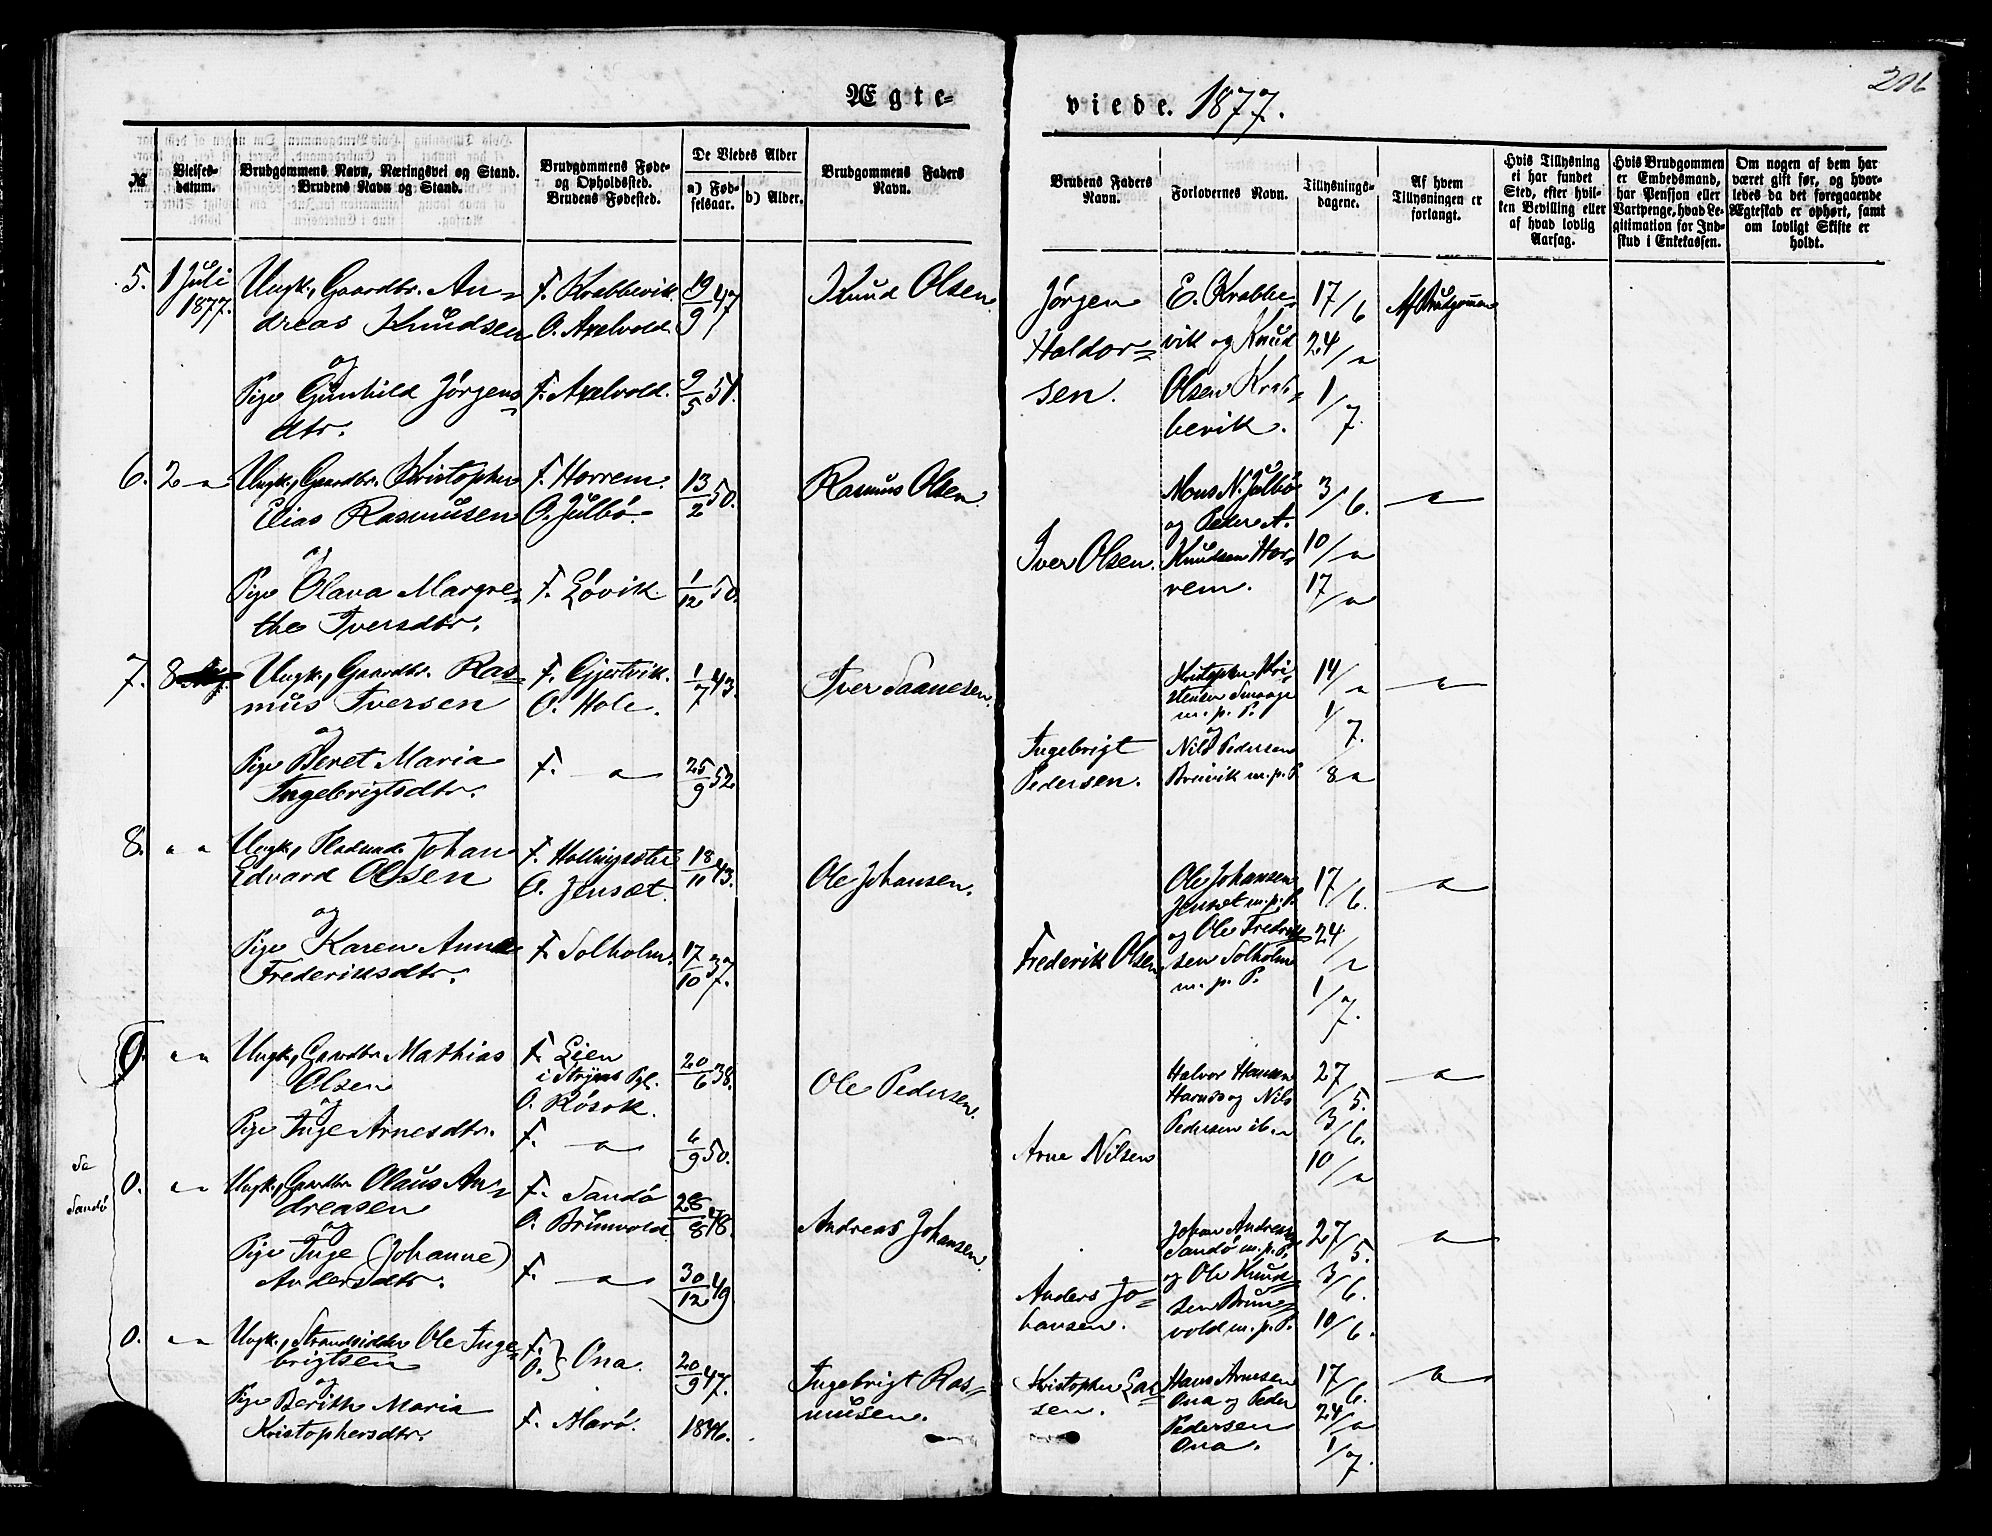 206
Ægte-
viede. 1877.
№
Vielses-
datum.
Brudgommens Navn, Næringsvei og Stand.
Brudens Navn og Stand.
Brudgommens Føde-
og Opholdssted.
Brudens Fødested.
De Viedes Alder
a) Fød-
selsaar.
b) Alder.
Brudgommens Faders
Navn.
Brudens Faders
Navn.
Forlovernes Navn.
Tillysnings-
dagene.
Af hvem
Tillysningen er
forlangt.
Hvis Tillysning
ei har fundet
Sted, efter hvil-
ken Bevilling eller
af hvad lovlig
Aarsag.
Hvis Brudgommen
er Embedsmand,
har Pension eller
Vartpenge, hvad Le-
gitimation for Ind-
skud i Enkekassen.
Om nogen af dem har
været gift før, og hvor-
ledes da det foregaaende
Ægteskab er ophørt, samt
om lovligt Skifte er
holdt.
5. 1 Juli
1877.
Ungk., Gaardbr. An-
dreas Knudsen
og
Pige Gunhild Jørgens-
dtr.
F. Krabbevik
O. Axelvold.
F. Axelvold.
19/9 47
9/5 51.
Knud Olsen.
Jørgen
Haldor-
sen.
E. Krabbe-
vik og Knud
Olsen Krab-
bevik.
17/6
24/"
1/7.
Af Brudgommen
6. 2 "
Ungk., Gaardbr. Kristopher
Elias Rasmusen
og
Pige Olava Margre-
the Iversdtr.
F. Horrem.
O. Julbø.
F. Løvik.
13/2 50.
1/12 50.
Rasmus Olsen.
Iver Olsen.
Mons N. Julbø
og Peder A.
Knudsen Hor-
rem.
3/6.
10/"
17/"
"
7. 8
Ungk., Gaardbr. Ras-
mus Iversen
og
Pige Beret Maria
Ingebrigtsdtr.
F. Gjertvik.
O. Hole.
F. "
1/7 43.
25/9 52.
Iver Saanesen.
Ingebrigt
Pedersen.
Kristopher Kri-
stensen
m. p. P.
og
Nils Pedersen
Breivik m. p. P.
14/"
1/7.
8 "
"
8. " "
Ungk., Johan
Edvard Olsen
og
Pige Karen Anna
Frederiksdtr.
F. Hollingsæter
O. Jensæt.
F. Solholm.
18/11 43.
17/10 37.
Ole Johansen.
Frederik Olsen
Ole Johansen
Jensæt m. p. P.
og Ole Fredrik-
sen Solholm
m. p. P.
17/6.
24/"
1/7.
"
0. " "
Ungk., Gaardbr. Mathias
Olsen
og
Pige Inge Arnesdtr.
F. Lien
i Stryns Pgl.
O. Røsok.
F. "
20/6 38.
6/9 50.
Ole Pedersen.
Arne Nilsen
Halvor Hansen
Harnes og Nils
Pedersen ib.
27/5.
3/6.
10/"
"
Se
Sandø
0. " "
Ungk., Gaardbr. Olaus An-
dreasen
og
Pige Inge (Johanne)
Andersdtr.
F. Sandø
O. Brunvold.
F. "
28/8 48.
30/12 49.
Andreas Johansen.
Anders Jo-
hansen.
Johan Andreas
Sandø m. p. P.
og Ole Knud-
sen Brun-
vold m. p. P.
27/5.
3/6.
10/6.
"
0. " "
Ungk., Strandsidder Ole Inge-
brigtsen
og
Pige Berith Maria
Kristophersdtr.
F. } Ona.
O.
F. Marø.
20/9 47.
1846.
Ingebrigt Ras-
musen.
Kristopher Lar-
sen.
Hans Arnesen
Ona og Peder
Pedersen
Ona.
17/6.
24/"
1/7.
"